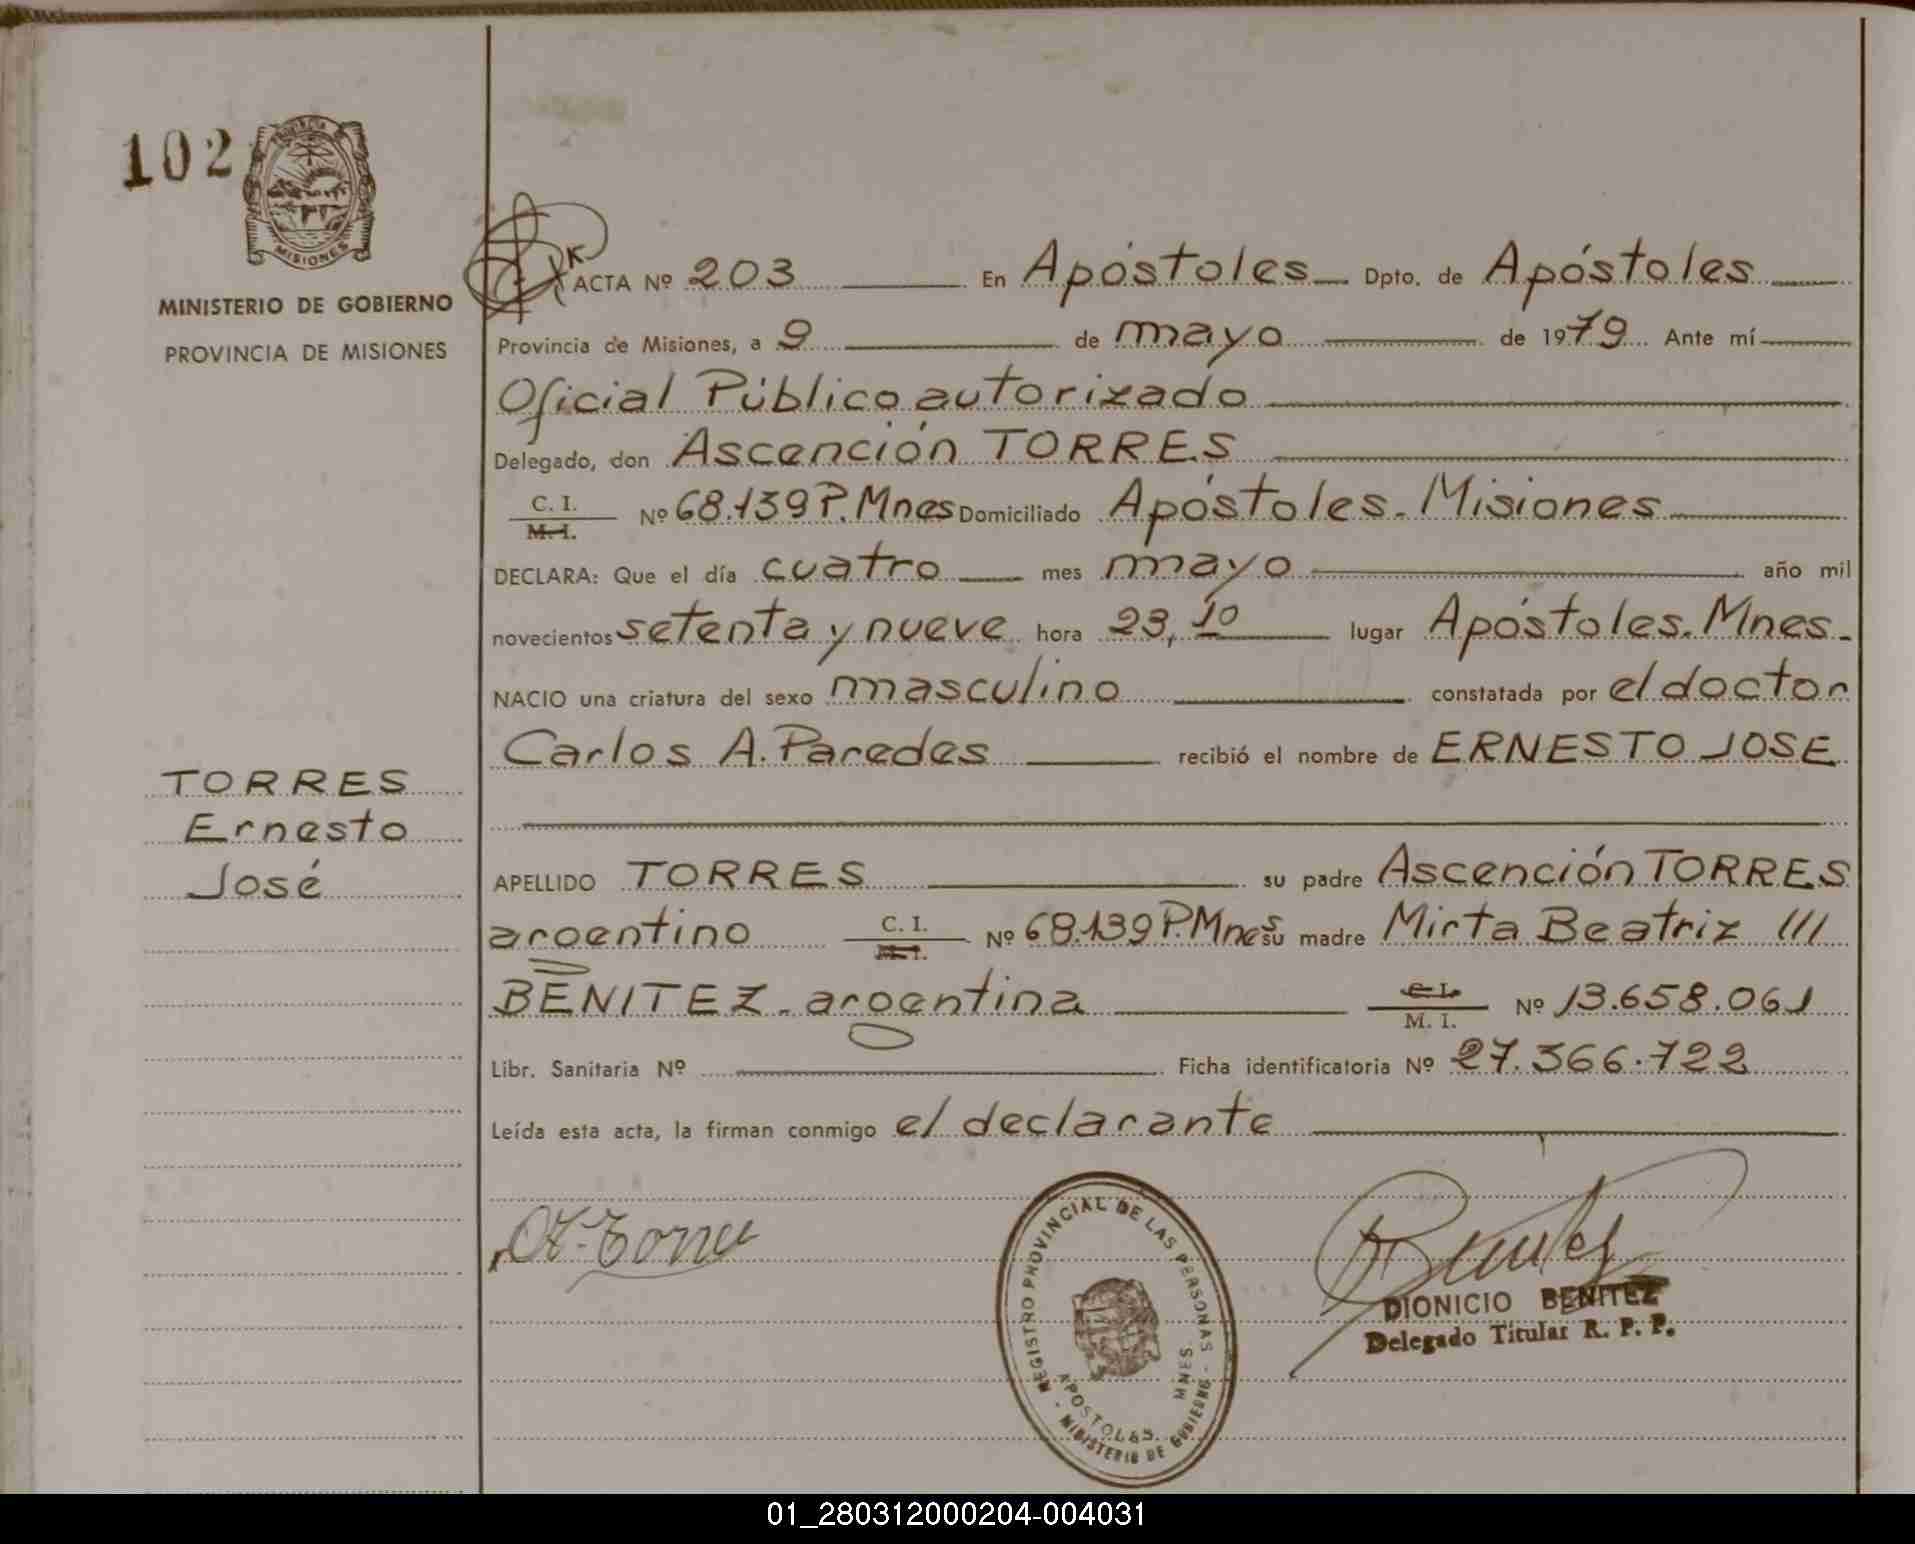 102
PROVINCIA
MISIONES
MINISTERIO DE GOBIERNO
PROVINCIA DE MISIONES
TORRES
Ernesto
José
ACTA Nº 203 En Apóstoles Dpto. de Apóstoles
Provincia de Misiones, a 9 de mayo de 1979 Ante mí
Oficial Público autorizado
Delegado, don Ascención TORRES
C. I.
M. I. Nº 68.139 P. Mnes Domiciliado Apóstoles. Misiones
DECLARA: Que el día cuatro mes mayo año mil
novecientos setenta y nueve hora 23,10 lugar Apóstoles. Mnes.
NACIO una criatura del sexo masculino constatada por el doctor
Carlos A. Paredes recibió el nombre de ERNESTO JOSE
APELLIDO TORRES su padre Ascención TORRES
argentino C. I. Nº 68.139 P. Mnes su madre Mirta Beatriz ///
M. I.
BENITEZ. argentina C. I. Nº 13.658.061
M. I.
Libr. Sanitaria Nº Ficha identificatoria Nº 27.366.722
Leída esta acta, la firman conmigo el declarante
REGISTRO PROVINCIAL DE LAS PERSONAS - MINISTERIO DE GOBIERNO -
APOSTOLES. MNES.
DIONICIO BENITEZ
Delegado Titular R. P. P.
01_280312000204-004031